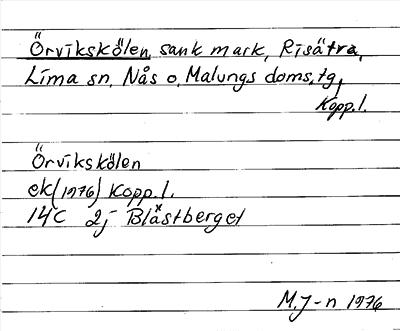 Örvikskölen, sank mark, Risätra,
Lima sn, Nås o. Malungs doms.tg,
Kopp.l.
Örvikskölen
ek(1976) Kopp.l.
14C 2j Blåstberget
M.J-n 1976